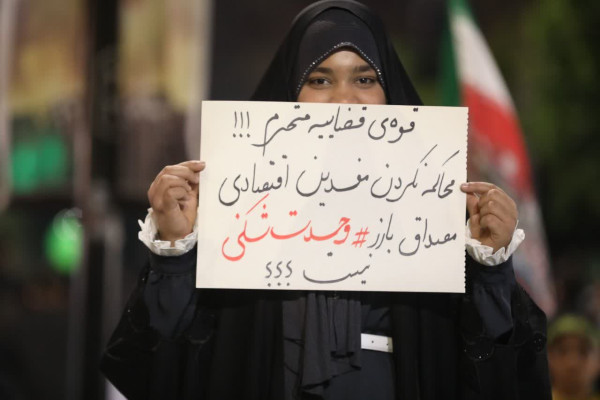 قوه‌ی قضاییه محترم !!!
محاکمه نکردن مفسدین اقتصادی
مصداق بارز #وحدت_شکنی
نیست ؟؟؟